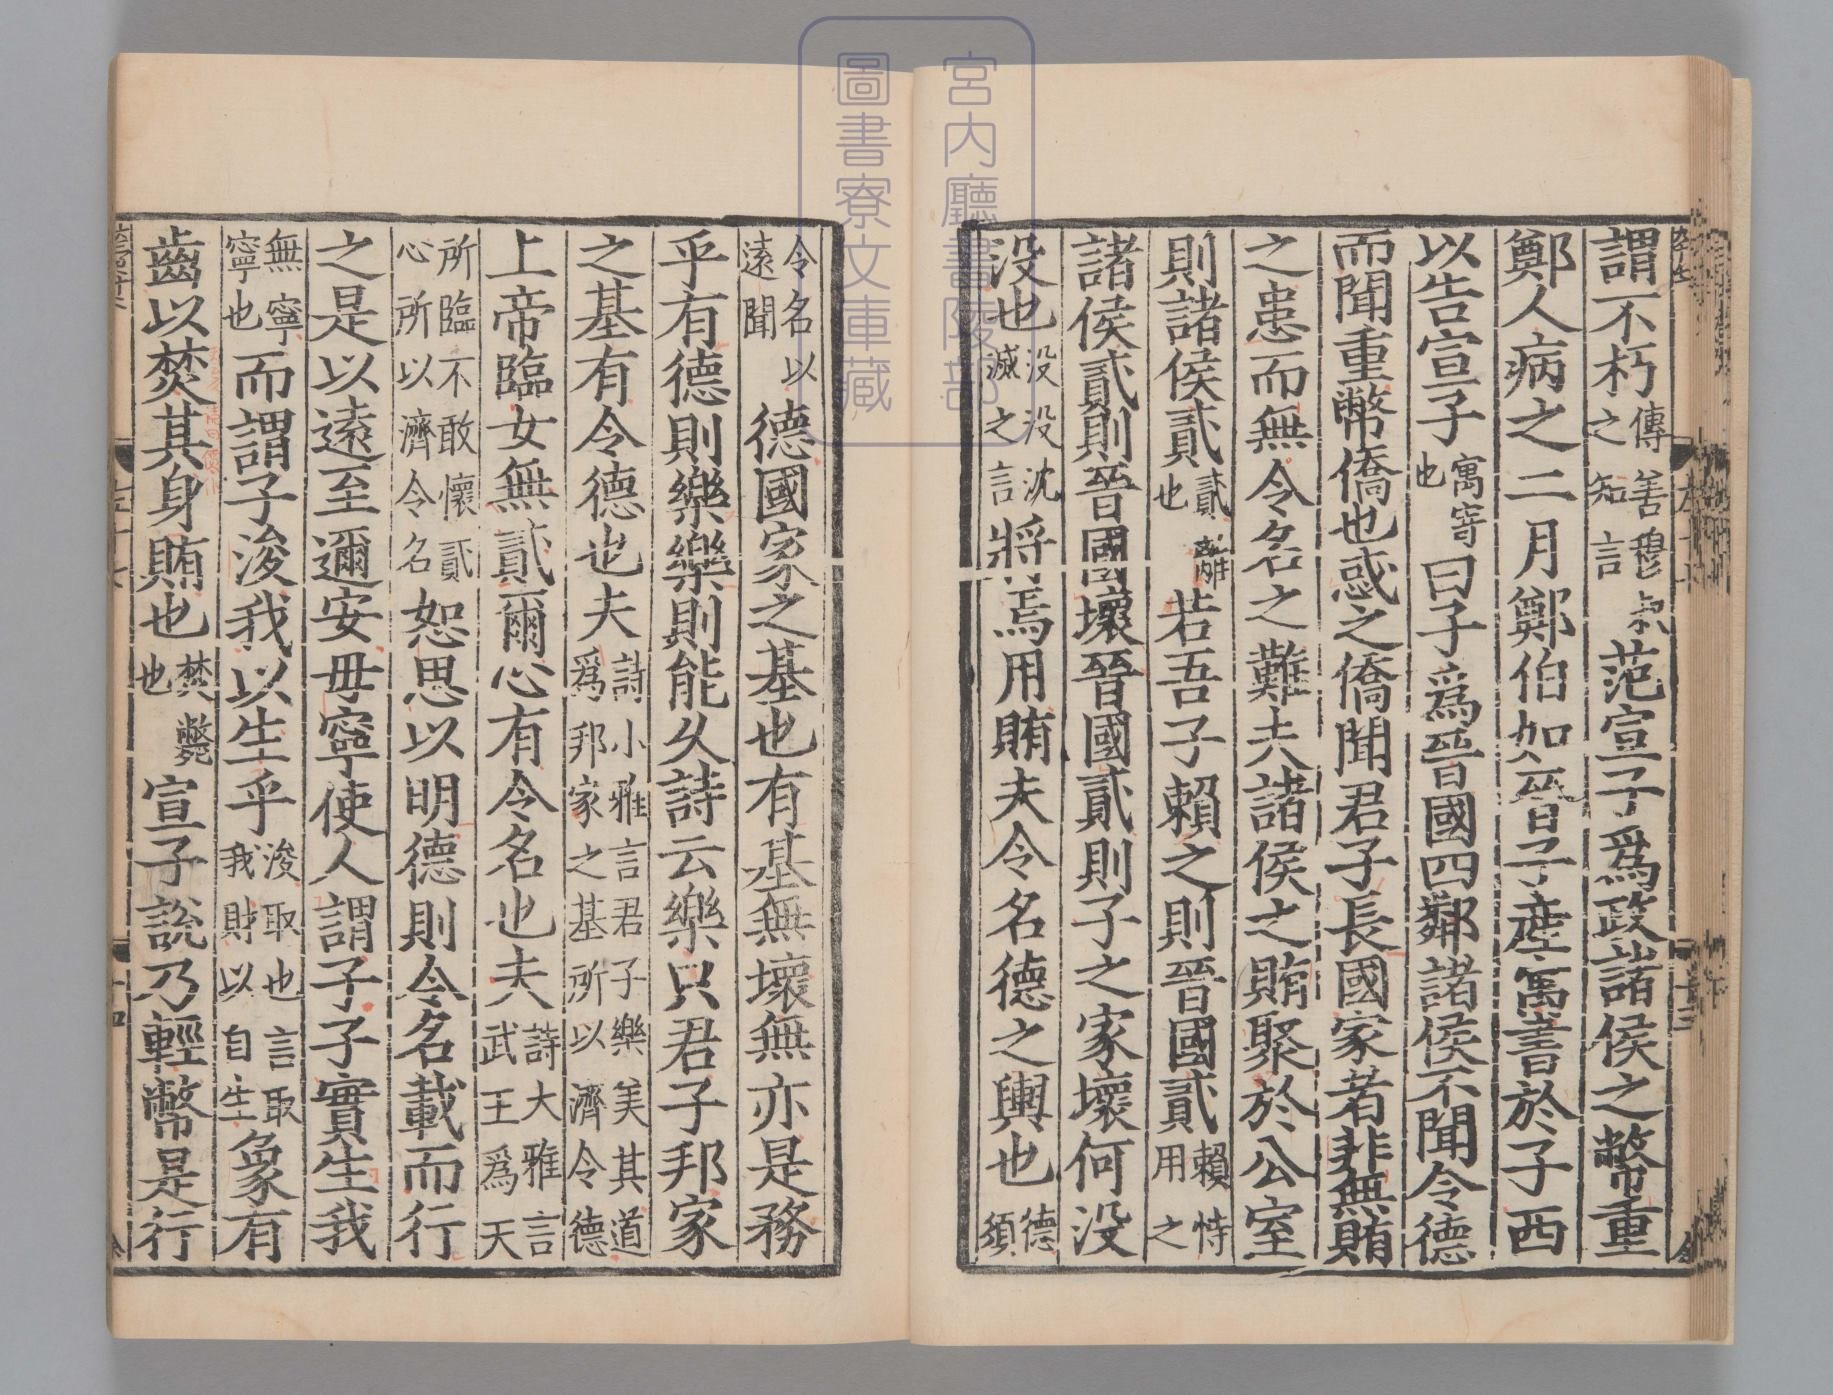 謂不朽傳善穆叔之知言范宣子爲政諸侯之幣重
鄭人病之二月鄭伯如晉子產寓書於子西
以告宣子寓寄也曰子爲晉國四鄰諸侯不聞令德
而聞重幣僑也惑之僑聞君子長國家者非無賄
之患而無令名之難夫諸侯之賄聚於公室
則諸侯貳貳離也若吾子賴之則晉國貳賴恃用之
諸侯貳則晉國壞晉國貳則子之家壞何没
没也没没沈滅之言將焉用賄夫令名德之輿也德須
令名以遠聞德國家之基也有基無壞無亦是務
乎有德則樂樂則能久詩云樂只君子邦家
之基有令德也夫詩小雅言君子樂美其道爲邦家之基所以濟令德
上帝臨女無貳爾心有令名也夫詩大雅言武王爲天
所臨不敢懷貳心所以濟令名恕思以明德則令名載而行
之是以遠至邇安毋寧使人謂子子實生我
無寧寧也而謂子浚我以生乎浚取也言取我財以自生象有
齒以焚其身賄也焚斃也宣子說乃輕幣是行
宮内廳書陵部
圖書寮文庫藏